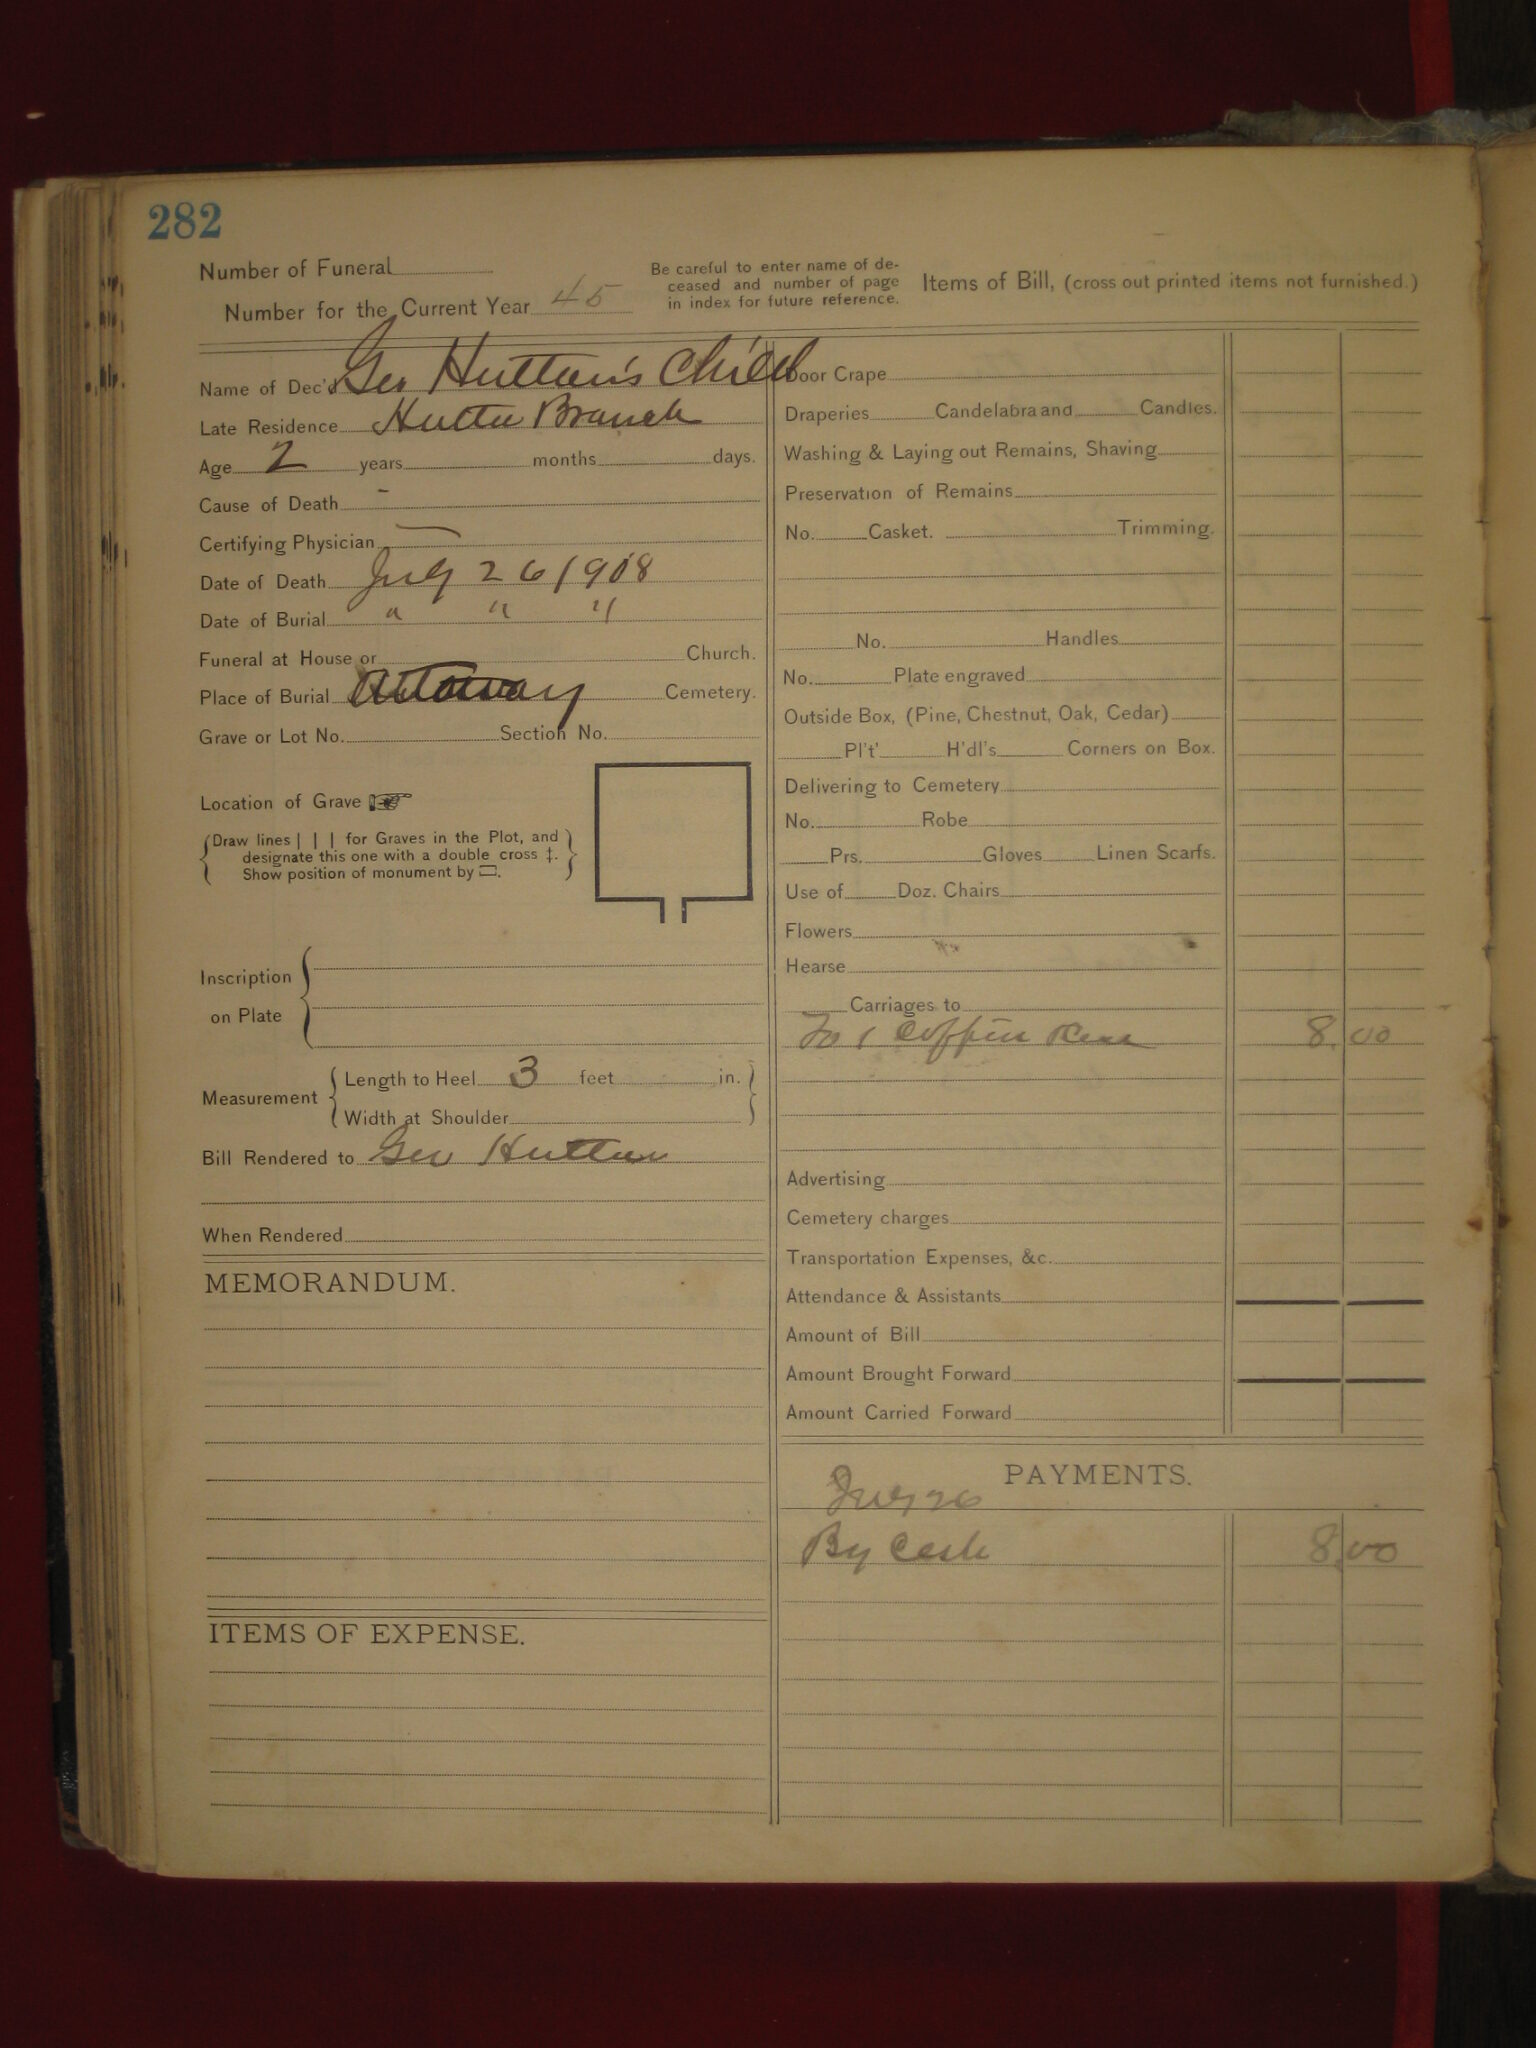 282
Number of Funeral
Number for the Current Year 45
Be careful to enter name of de-
ceased and number of page
in index for future reference.
Items of Bill, (cross out printed items not furnished.)
Name of Dec'd Geo Hutton's Child
Late Residence Hutton Branch
Age 2 years months days.
Cause of Death -
Certifying Physician —
Date of Death July 26 1908
Date of Burial " " "
Funeral at House or Church.
Place of Burial Cemetery.
Grave or Lot No. Section No.
Location of Grave
Draw lines | | | for Graves in the Plot, and
designate this one with a double cross ‡.
Show position of monument by ▭.
Inscription
on Plate
Measurement
Length to Heel 3 feet in.
Width at Shoulder
Bill Rendered to Geo Hutton
When Rendered
MEMORANDUM.
ITEMS OF EXPENSE.
Door Crape
Draperies Candelabra and Candles.
Washing & Laying out Remains, Shaving
Preservation of Remains
No. Casket. Trimming.
No. Handles
No. Plate engraved
Outside Box, (Pine, Chestnut, Oak, Cedar)
Pl't' H'dl's Corners on Box.
Delivering to Cemetery
No. Robe
Prs. Gloves Linen Scarfs.
Use of Doz. Chairs
Flowers
Hearse
Carriages to
To 1 Coffin 8.00
Advertising
Cemetery charges
Transportation Expenses, &c.
Attendance & Assistants
Amount of Bill
Amount Brought Forward
Amount Carried Forward
PAYMENTS.
July 26
By Cash 8.00